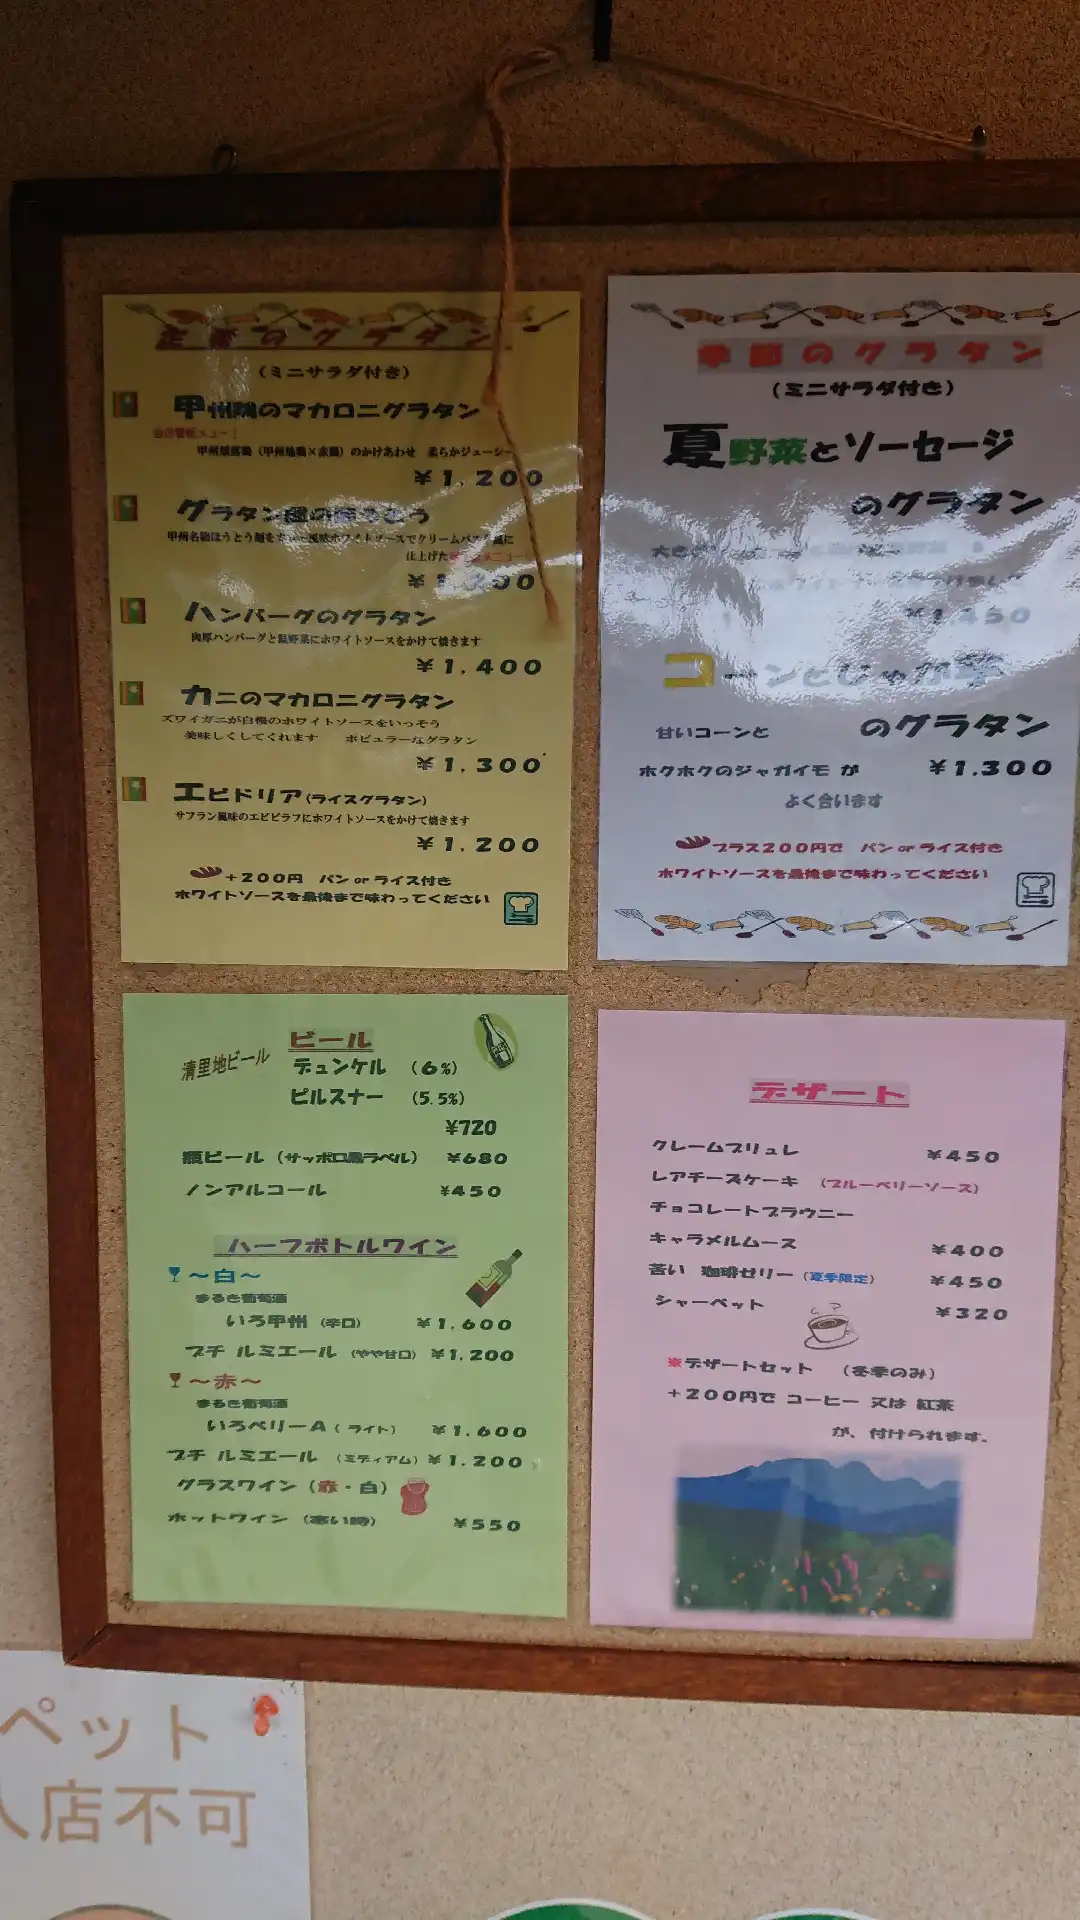 定番のグラタン
(ミニサラダ付き)
甲州鶏のマカロニグラタン
当店看板メニュー!
（甲州地鶏×赤鶏）のかけあわせ 柔らかジューシー
¥1,200
グラタン
甲州名物ほうとう麺を ホワイトソースでクリームパスタ風に
仕上げた
ハンバーグのグラタン
肉厚ハンバーグと温野菜にホワイトソースをかけて焼きます
¥1,400
カニのマカロニグラタン
ズワイガニが自慢のホワイトソースをいっそう
美味しくしてくれます ポピュラーなグラタン
¥1,300
エビドリア(ライスグラタン)
サフラン風味のエビピラフにホワイトソースをかけて焼きます
¥1,200
+200円 パン or ライス付き
ホワイトソースを最後まで味わってください
季節のグラタン
(ミニサラダ付き)
夏野菜とソーセージ
のグラタン
¥1,450
コーンとじゃが芋
甘いコーンと のグラタン
ホクホクのジャガイモ が ¥1,300
よく合います
プラス200円で パン or ライス付き
ホワイトソースを最後まで味わってください
ビール
清里地ビール デュンケル (6%)
ピルスナー (5.5%)
¥720
瓶ビール (サッポロ黒ラベル) ¥680
ノンアルコール ¥450
ハーフボトルワイン
～白～
まるき葡萄酒
いろ甲州 (辛口) ¥1,600
プチ ルミエール (やや甘口) ¥1,200
～赤～
まるき葡萄酒
いろベリーA (ライト) ¥1,600
プチ ルミエール (ミディアム) ¥1,200
グラスワイン (赤・白)
ホットワイン (寒い時) ¥550
デザート
クレームブリュレ ¥450
レアチーズケーキ (ブルーベリーソース)
チョコレートブラウニー
キャラメルムース ¥400
苦い 珈琲ゼリー (夏季限定) ¥450
シャーベット ¥320
※デザートセット (冬季のみ)
+200円で コーヒー 又は 紅茶
が、付けられます。
ペット
入店不可